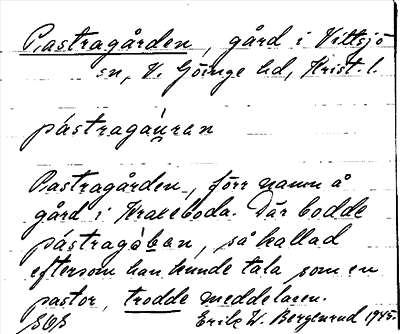 Pastragården, gård i Vittsjö
sn, V. Göinge hd, Krist. l.
pástragau̯ran
Pastragården, förr namn å
gård i Kraxeboda. Där bodde
pástragàban, så kallad
eftersom han kunde tala som en
pastor, trodde meddelaren.
Erik W. Bergenrud 1945.